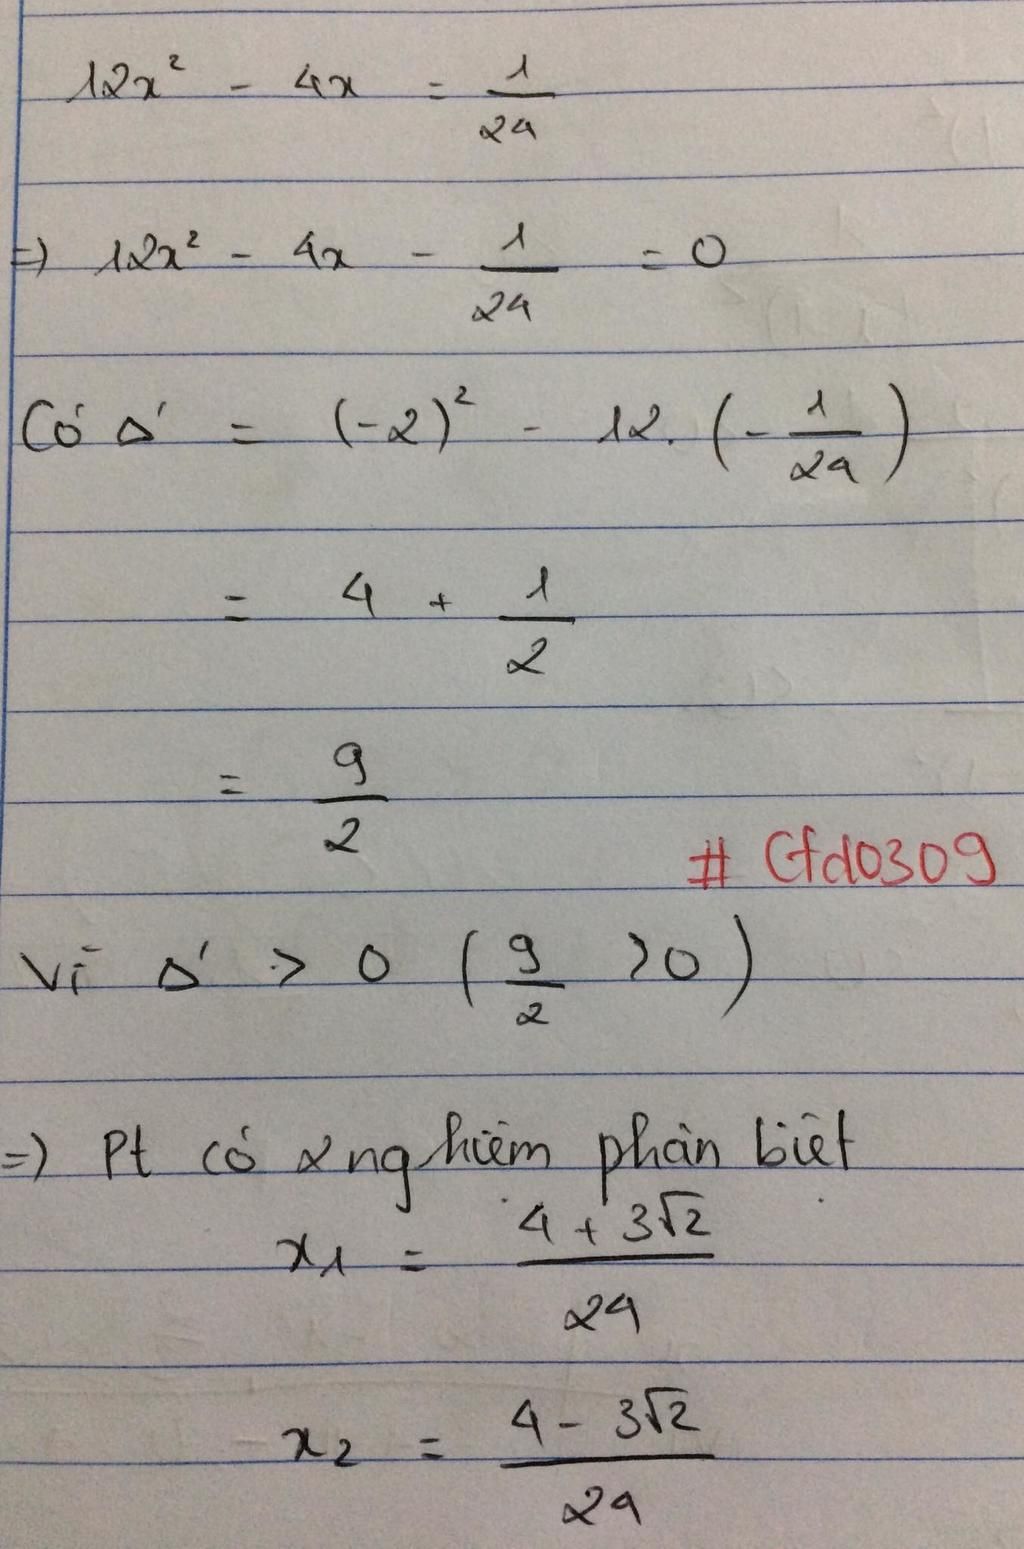 12x² - 4x = 1/24
=) 12x² - 4x - 1/24 = 0
Có Δ' = (-2)² - 12. (- 1/24)
= 4 + 1/2
= 9/2
# Cfd0309
Vì Δ' > 0 (9/2 >0)
=) Pt có 2 nghiệm phân biệt
x1 = (4 + 3√2)/24
x2 = (4 - 3√2)/24